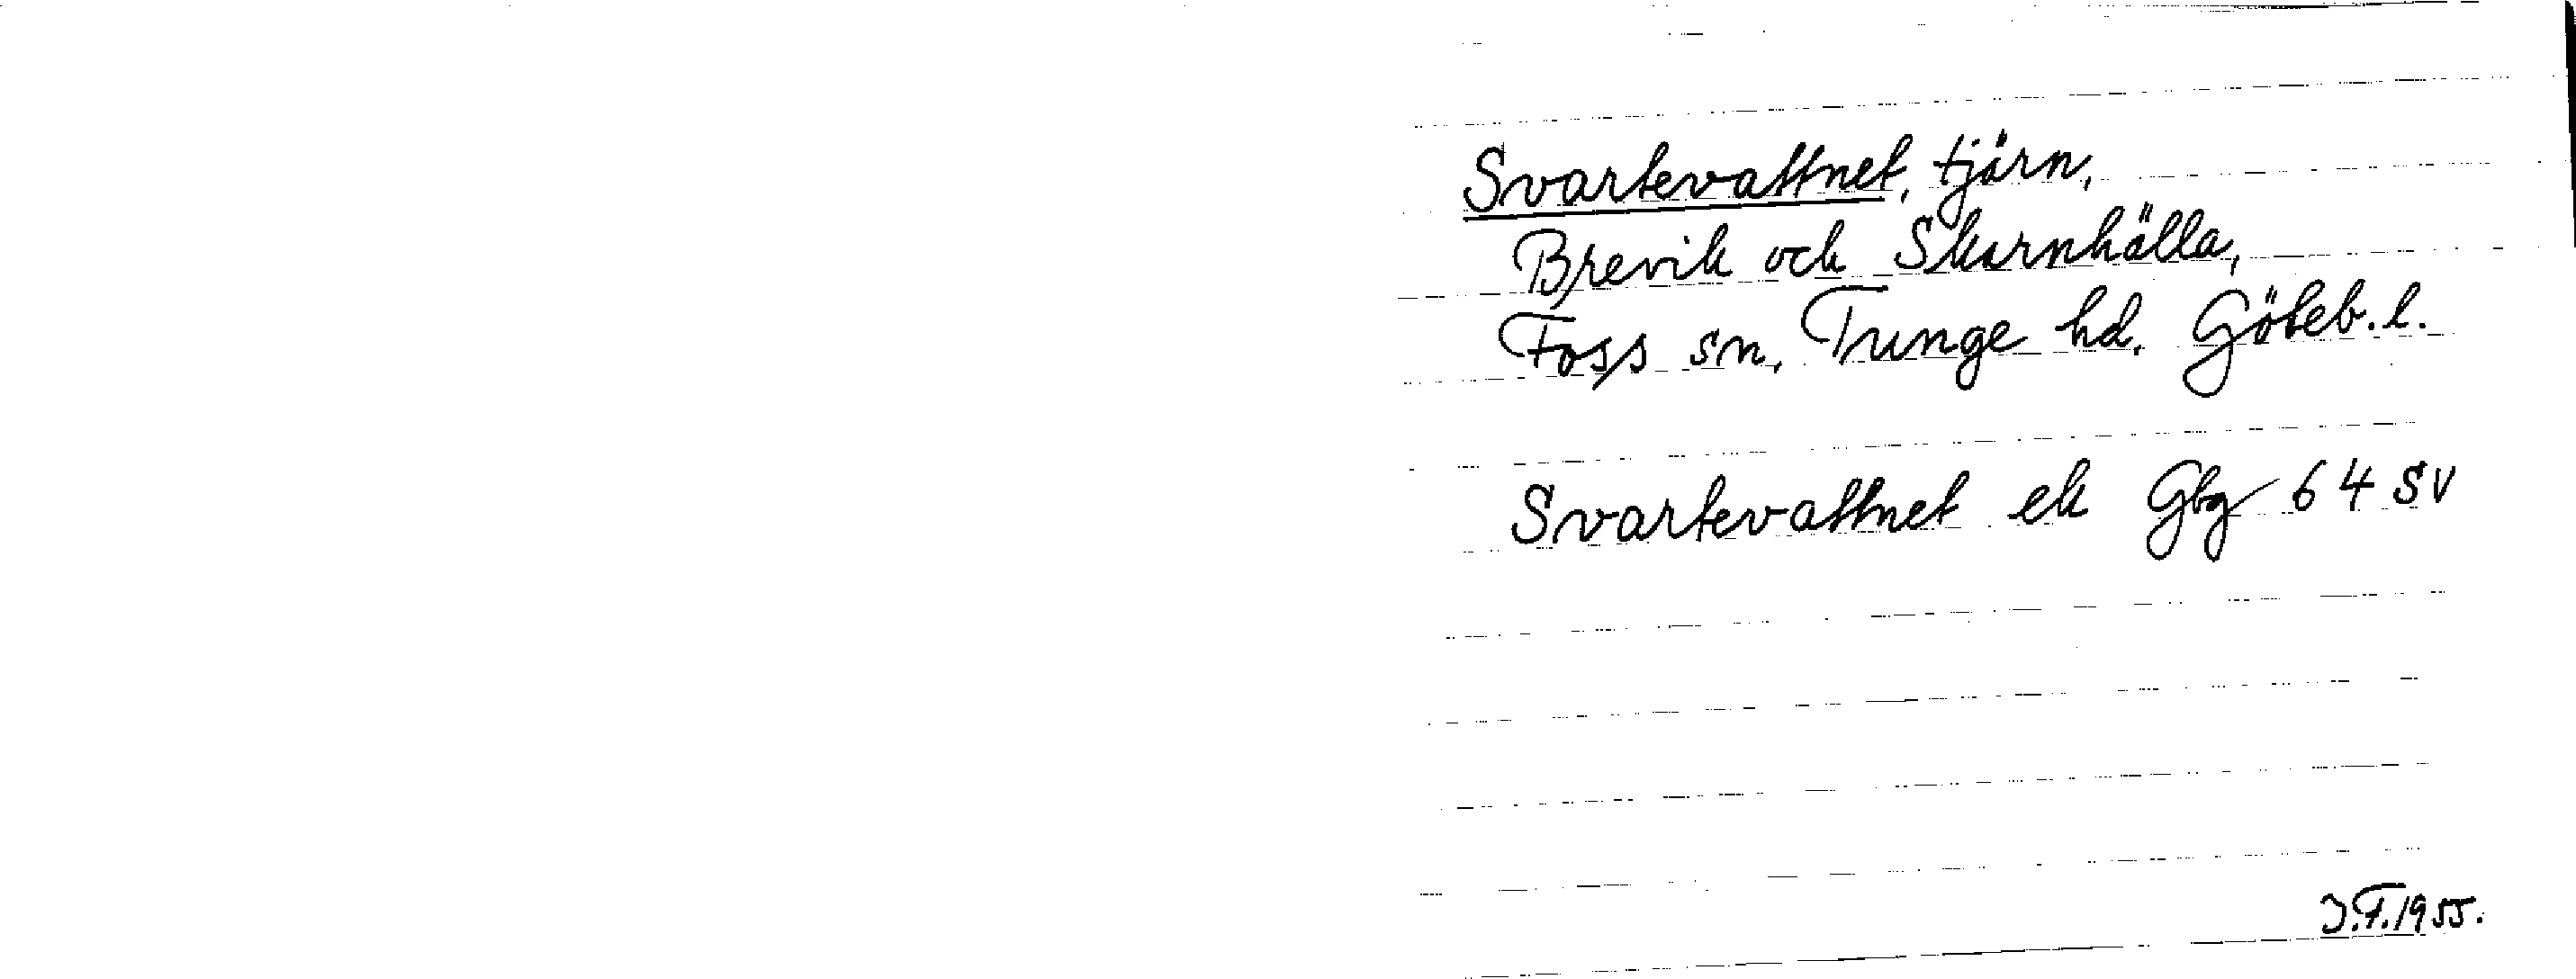 Svartevattnet, tjärn,
Brevik och Skarnhälla,
Foss sn, Tunge hd. Göteb. l.
Svartevattnet ek Gbg 64 SV
J.F. 1955.